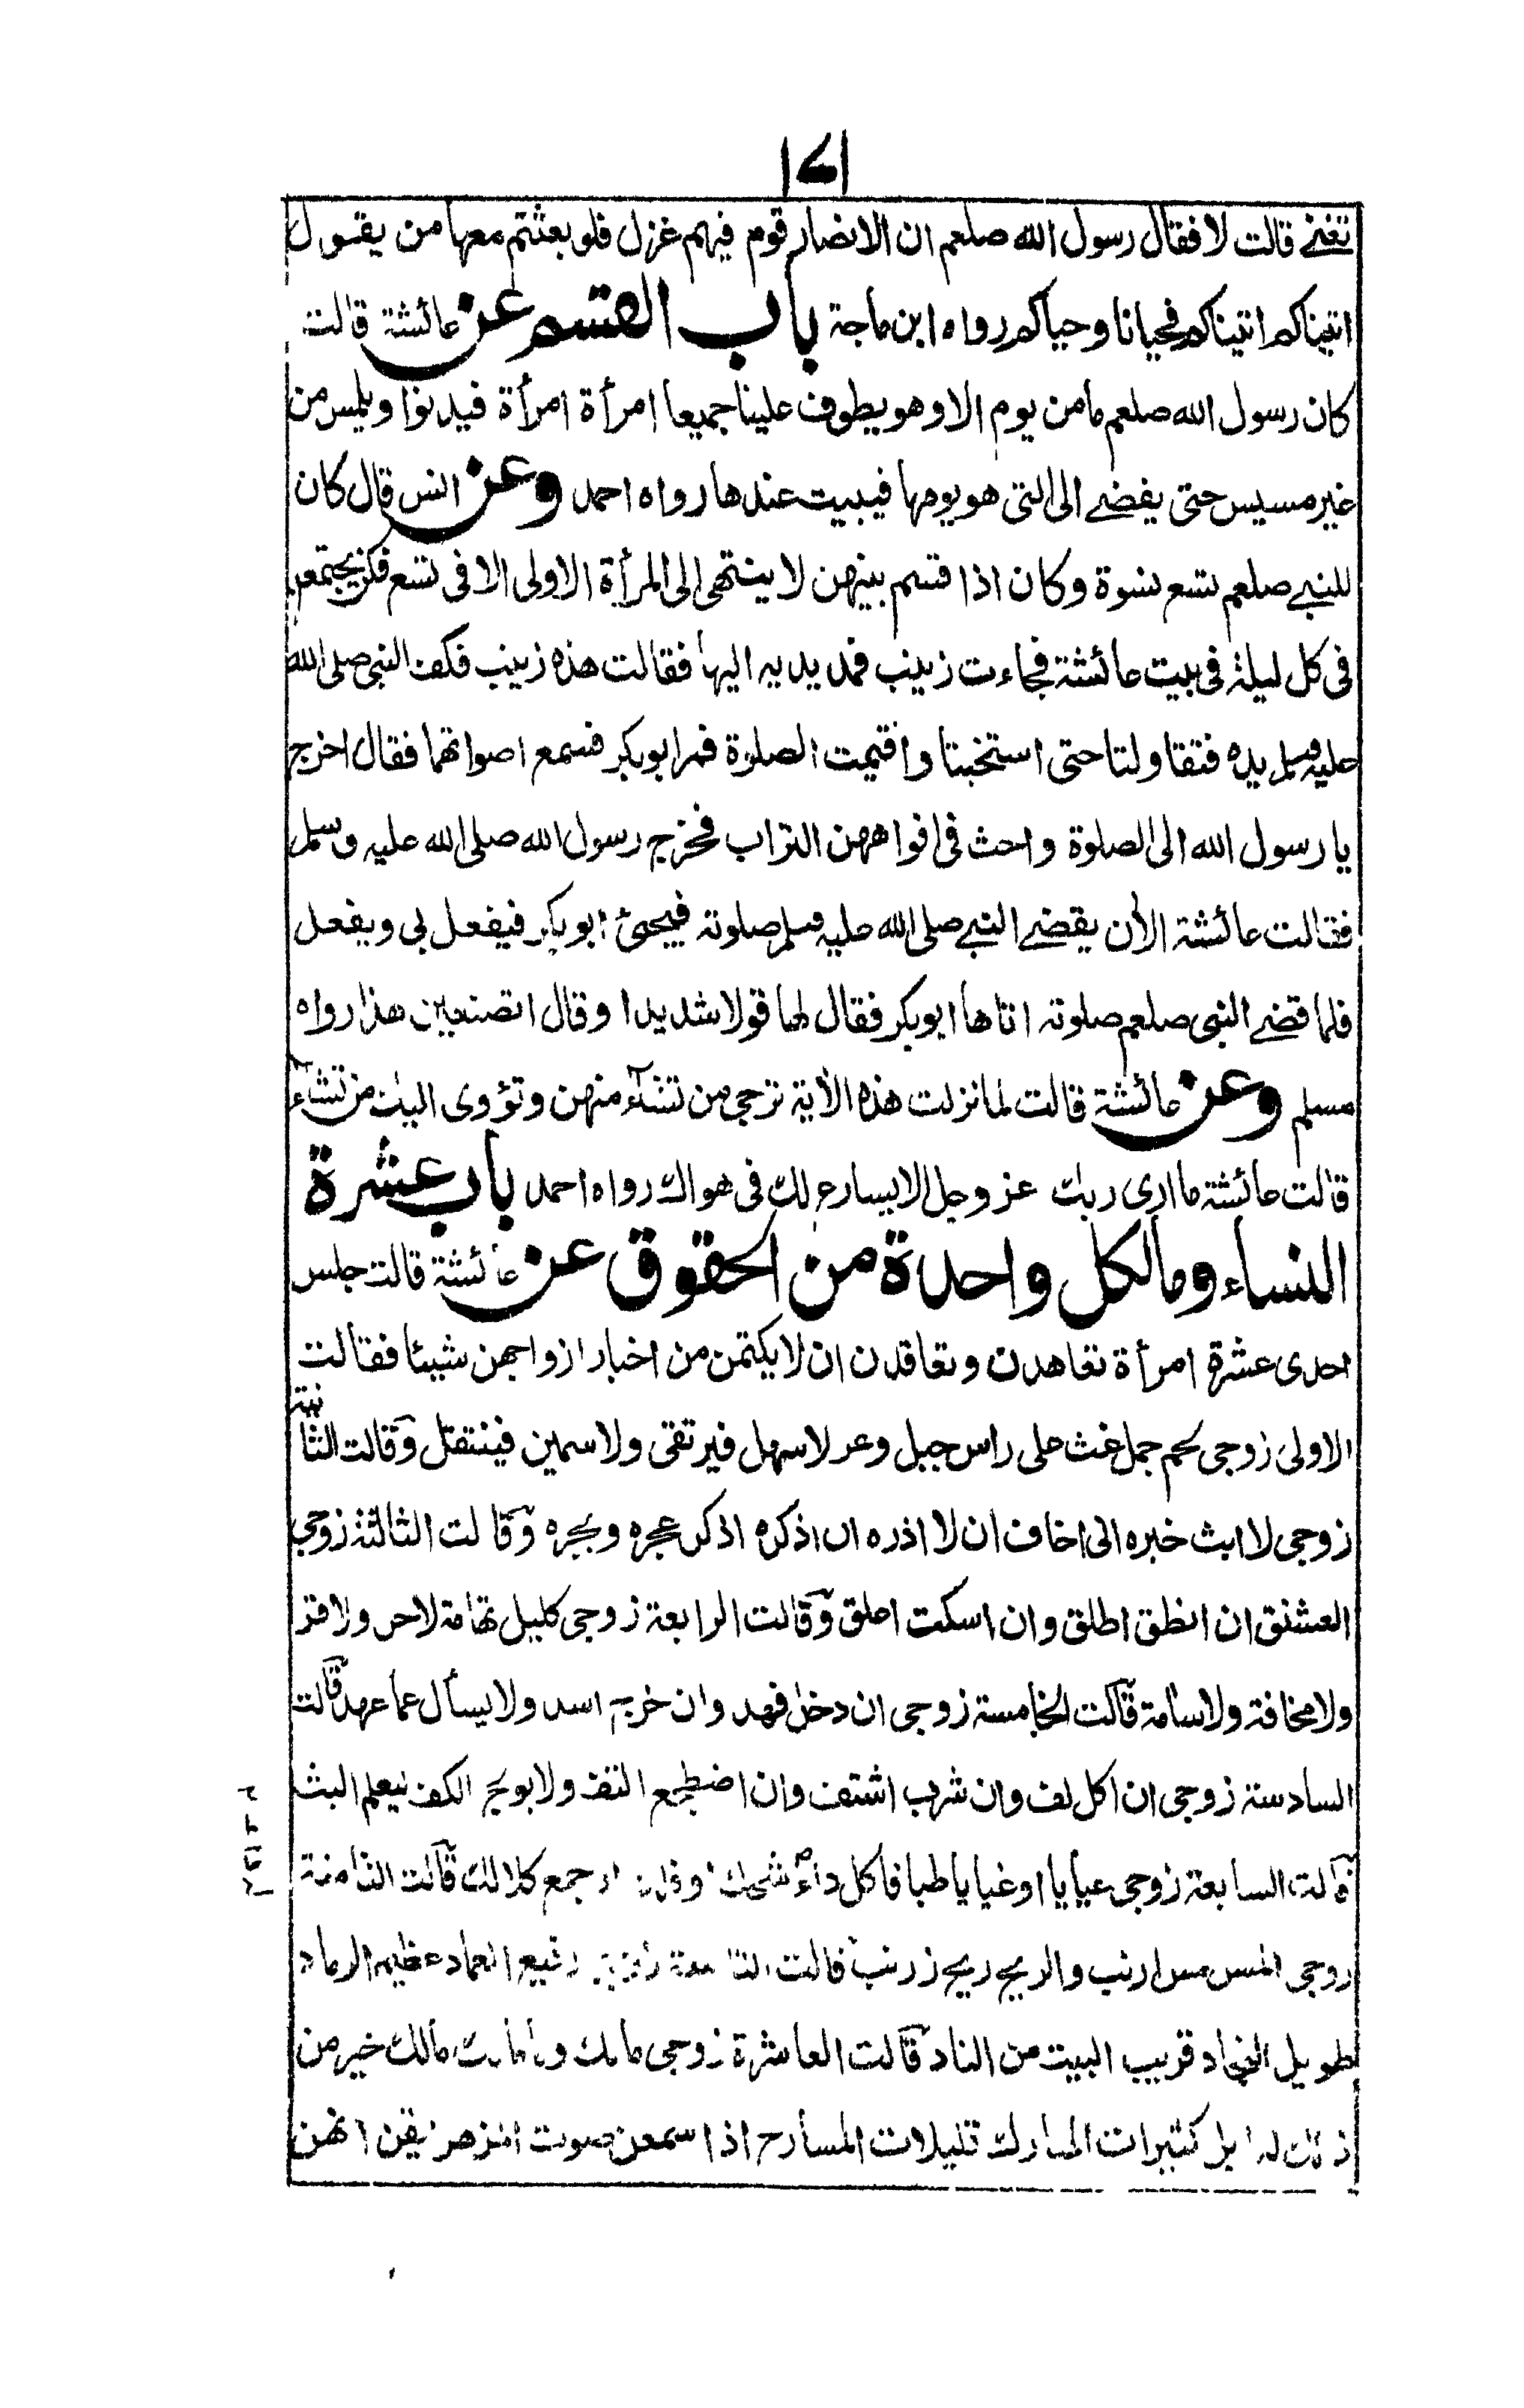 ١٧١
تغنے قالت لا فقال رسول الله صلعم ان الانصار قوم فيهم غزل فلو بعثتم معها من يقول
اتيناكم اتيناكم فحيانا وحياكم رواه ابن ماجة باب القسم عن عائشة قالت
كان رسول الله صلعم ما من يوم الا وهو يطوف علينا جميعا امرأة امرأة فيدنوا ويلمس من
غير مسيس حتى يفضے الى التى هو يومها فيبيت عندها رواه احمد وعن انس قال كان
للنبے صلعم تسع نسوة وكان اذا قسم بينهن لا ينتهى الى المرأة الاولى الا فى تسع فكن يجتمعن
فى كل ليلة فى بيت عائشة فجاءت زينب فمد يديه اليها فقالت هذه زينب فكف النبى صلى الله
عليه وسلم يده فتقاولتا حتى استخبتا واقيمت الصلوة فمر ابو بكر فسمع اصواتهما فقال اخرج
يا رسول الله الى الصلوة واحث فى افواههن التراب فخرج رسول الله صلى الله عليه وسلم
فقالت عائشة الأن يقضے النبے صلى الله عليه وسلم صلوته فيجئ ابو بكر فيفعل بى ويفعل
فلما قضے النبى صلعم صلوته اتاها ابو بكر فقال لها قولا شديدا وقال اتصنعين هذا رواه
مسلم وعن عائشة قالت لما نزلت هذه الأية ترجى من تشآء منهن وتؤوى اليك من تشآء
قالت عائشة ما ارى ربك عز وجل الا يسارع لك فى هواك رواه احمد باب عشرة
النساء وما لكل واحدة من الحقوق عن عائشة قالت جلس
احدى عشرة امرأة تعاهدن وتعاقدن ان لا يكتمن من اخبار ازواجهن شيئا فقالت
الاولى زوجى لحم جمل غث على راس جبل وعر لا سهل فيرتقى ولا سمين فينتقل وقالت الثانية
زوجى لا ابث خبره انى اخاف ان لا اذره ان اذكره اذكر عجره وبجره وقالت الثالثة زوجى
العشنق ان انطق اطلق وان اسكت اعلق وقالت الرابعة زوجى كليل تهامة لا حر ولا قر
ولا مخافة ولا سأمة قالت الخامسة زوجى ان دخل فهد وان خرج اسد ولا يسأل عما عهد قالت
السادسة زوجى ان اكل لف وان شرب اشتف وان اضطجع التف ولا يولج الكف ليعلم البث
قالت السابعة زوجى عيايا او غيايا طباقا كل داء شجك او جمع كلا لك قالت الثامنة
زوجى المس مس ارنب والريح ريح زرنب قالت التاسعة رفيع العماد عظيم الرماد
طويل النجاد قريب البيت من الناد قالت العاشرة زوجى مالك وما مالك مالك خير من
ذلك له ابل كثيرات المبارك قليلات المسارح اذا سمعن صوت المزهر يقن انهن